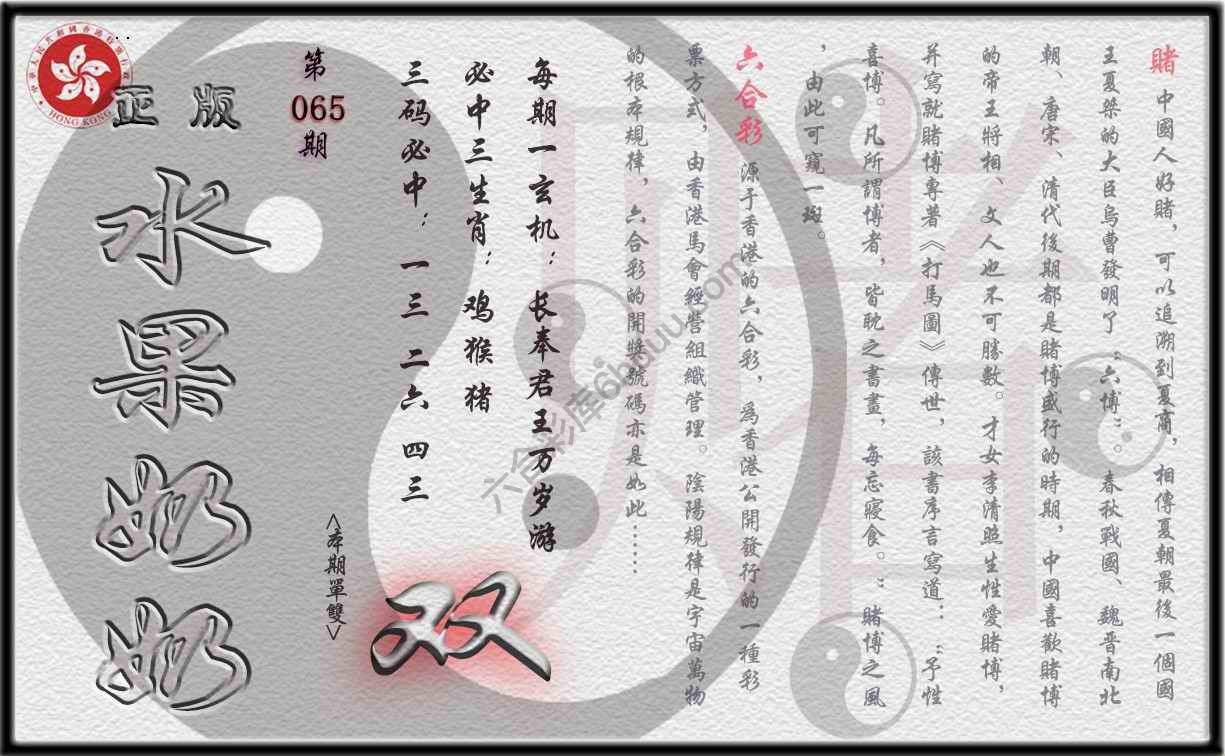 賭 中國人好賭，可以追溯到夏商，相傳夏朝最後一個國
王夏桀的大臣烏曹發明了“六博”。春秋戰國、魏晋南北
朝、唐宋、清代後期都是賭博盛行的時期，中國喜歡賭博
的帝王將相、文人也不可勝數。才女李清照生性愛賭博，
并寫就賭博專著《打馬圖》傳世，該書序言寫道：：“予性
喜博。凡所謂博者，皆眈之書畫，每忘寢食。”賭博之風
，由此可窺一斑。
六合彩 源于香港的六合彩，爲香港公開發行的一種彩
票方式，由香港馬會經營組織管理。陰陽規律是宇宙萬物
的根本規律，六合彩的開獎號碼亦是如此……
每期一玄机：长奉君王万岁游
必中三生肖：鸡猴猪
三码必中：一三 二六 四三
第
065
期
<本期單雙>
双
正版
水果奶奶
六合彩库6hduu.com
HONG KONG